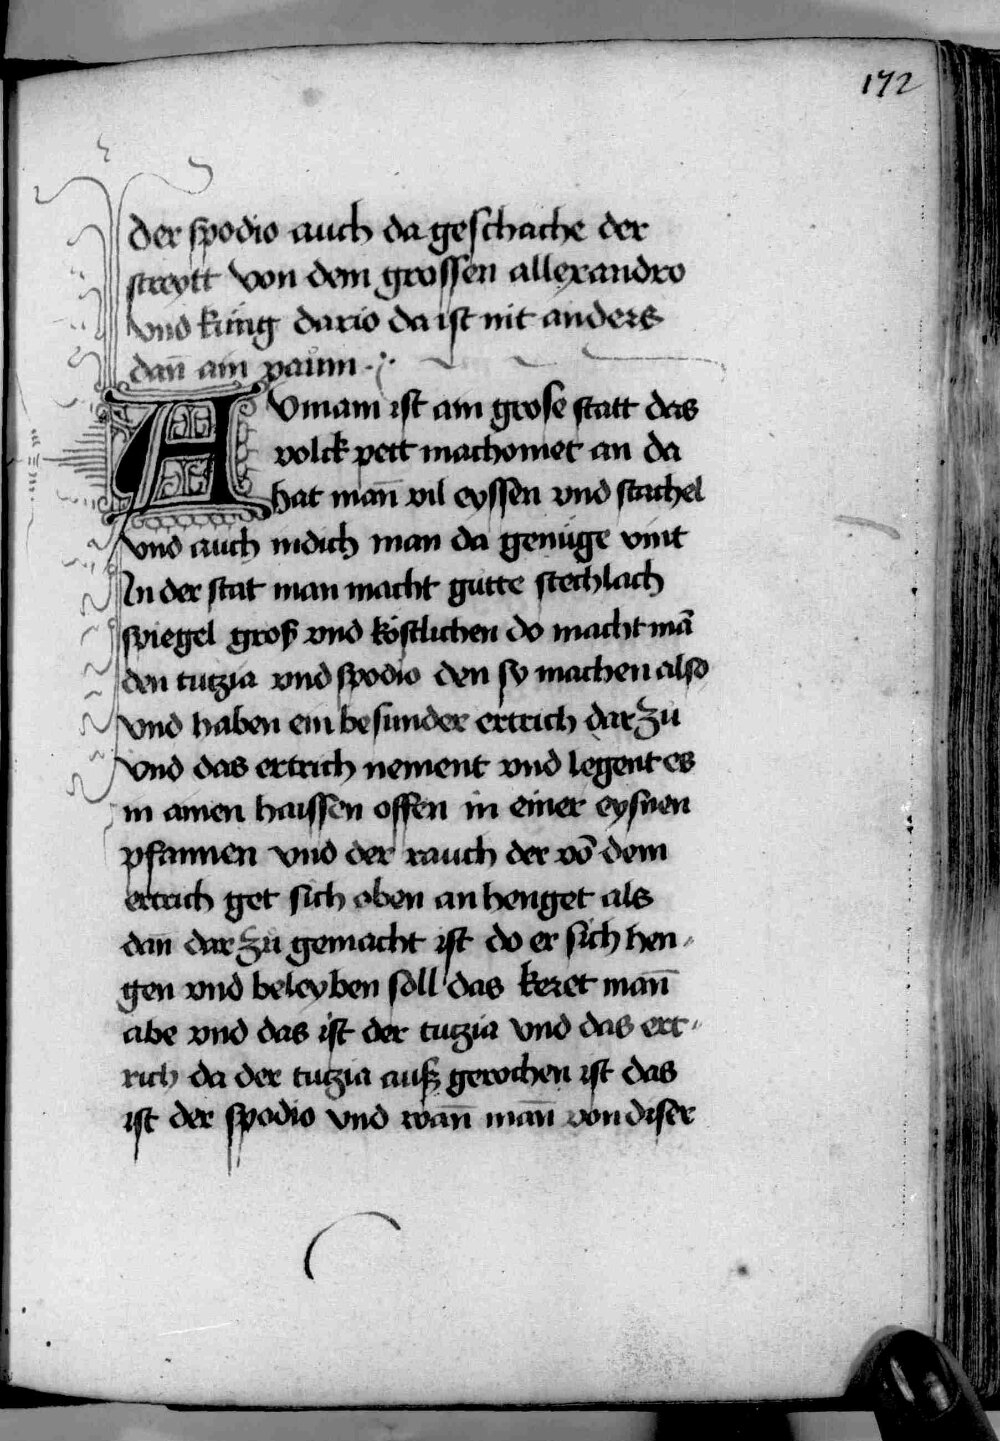 172
der spodio auch da geschache der
streytt von dem grossen allexandro
vnd küng dario da ist nit anders
dan̄ ain paum
AVmam ist ain grose statt das
volck pett machomet an da
hat man̄ vil eyssen vnd stachel
vnd auch indich man da genüge vint
In der stat man macht gutte stechlach
spiegel groß vnd köstlichen do macht mā
den tutzia vnd spodio den sy machen also
vnd haben ein besunder ertrich dar zu
vnd das ertrich nement vnd legent es
in ainen haissen offen in einer eysnen
pfannen vnd der rauch der vō dem
ertrich get sich oben an henget als
dan̄ dar zů gemacht ist do er sich hen-
gen vnd beleyben soll das keret man̄
abe vnd das ist der tutzia vnd das ert-
rich da der tutzia auß gerochen ist das
ist der spodio vnd wan̄ man̄ von diser